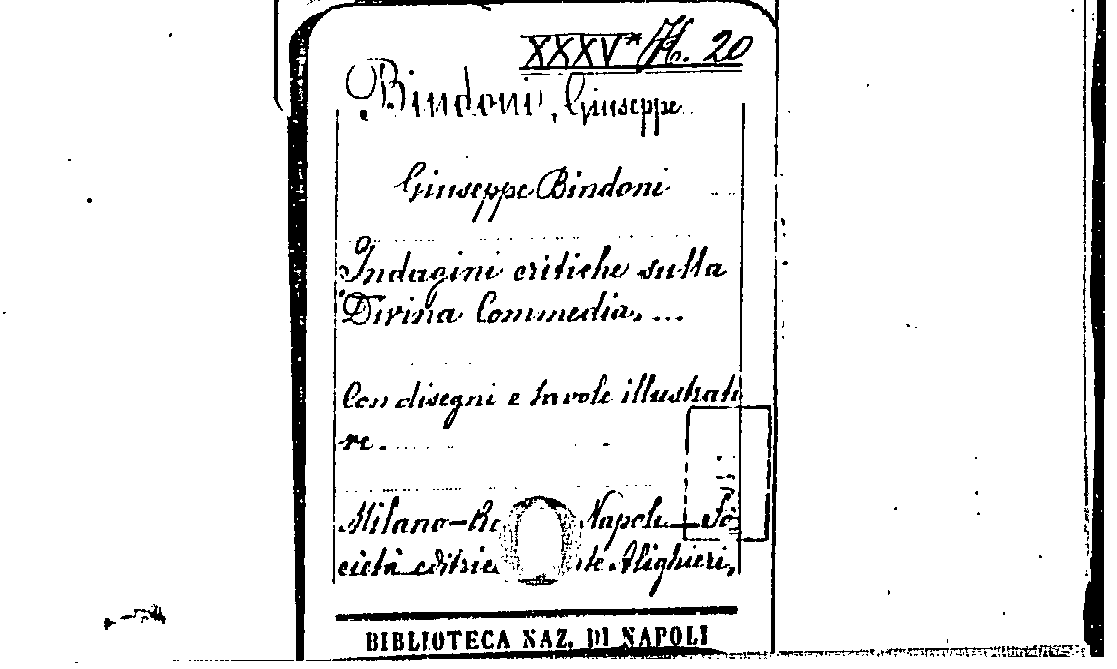 XXXV* H. 20
Bindoni, Giuseppe
Giuseppe Bindoni
Indagini critiche sulla
Divina Commedia. ...
Con disegni e tavole illustrati
ve.
Milano-Ro Napoli - So
cietà editric nte Alighieri,
BIBLIOTECA NAZ. DI NAPOLI